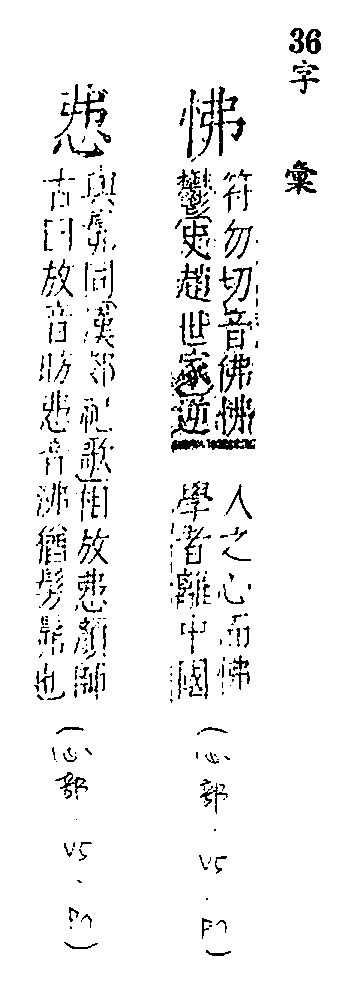 36字彙
怫
符勿切音佛怫
鬱史趙世家逆
人之心而怫
學者離中國
(心部.V5.
㤄
與髴同漢郊祀歌相放㤄顏師
古曰放音昉㤄音沸猶髣髴也
(心部.V5.